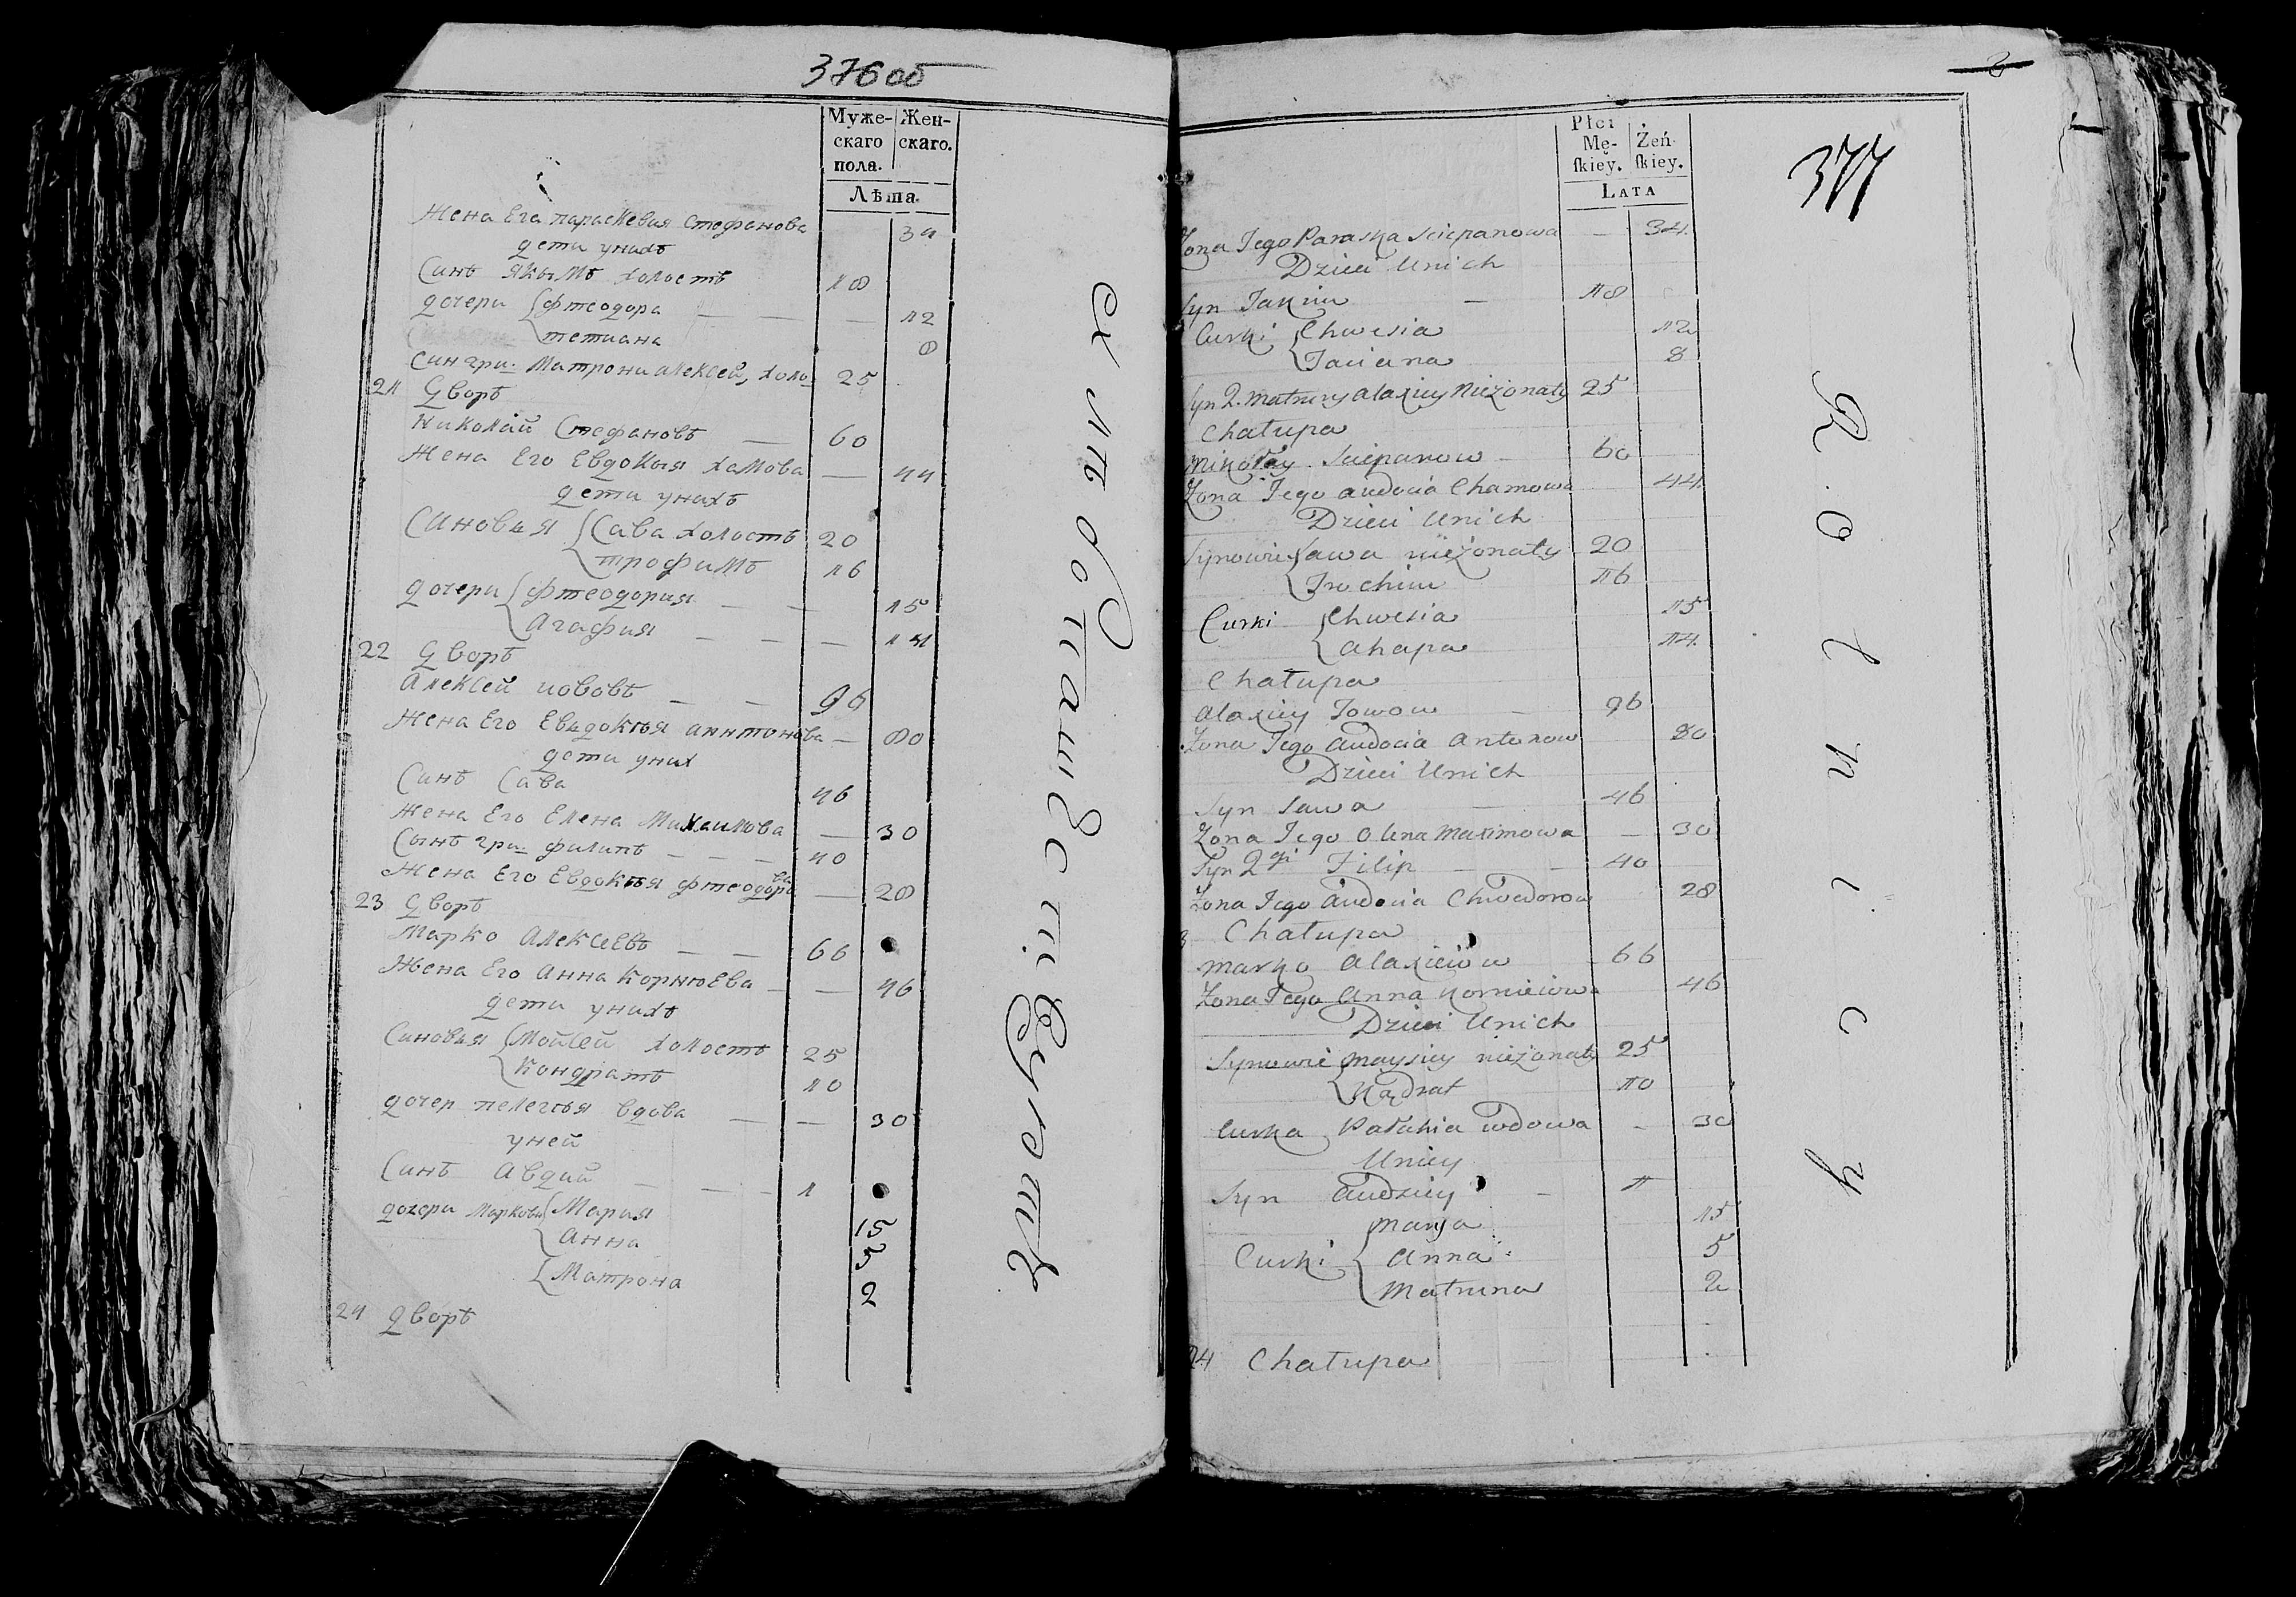 376 об
Муже- Жен-
скаго скаго.
пола.
Лѣта.
Жена Его параскевия Стефанова — 34
дети унихъ
Синъ якымъ холостъ 18
дочери фтеодора — — — 12
тетиана 8
Син гри: Матрони алексей, холо: 25
21 Дворъ
Николай Стефановъ — 60
Жена Его Евдокия хамова — 44
дети унихъ
Синовья Сава холостъ 20
трофимъ 16
дочери фтеодория — — 15
Агафия — — — 14
22 Дворъ
Алексей иововъ — — 96
Жена Его Евдокия антонова — 80
дети уних
Синъ Сава 46
Жена Его Елена Михаимова — 30
Сынъ гри: филипъ — — — 40
Жена Его Евдокия фтеодорова — 28
23 Дворъ
Марко Алексеевъ — — 66
Жена Его Анна Корниева — — 46
дети унихъ
Синовья Мойсей холостъ 25
Кондратъ 10
дочер пелегия вдова — — 30
уней
Синъ Авдий — — — 1
дочери Маркови Мария 15
Анна 5
Матрона 2
24 Дворъ
377
Płci
Mę- Żeń-
ſkiey. ſkiey.
Lata
Żona Jego Paraska Sciepanowa — 34
Dzieci Unich
Syn Jakim — 18
Curki Chwesia 12
Taciana 8
Syn 2. Matruny Alaxiey Nieżonaty 25
Chałupa
Mikołay Sciepanow — 60
Żona Jego Audocia Chamowa 44
Dzieci Unich
Synowie Sawa nieżonaty 20
Trochim 16
Curki Chwesia 15
Ahapa 14
Chałupa
Alaxiey Jowow — 96
Żona Jego Audocia Antonow 80
Dzieci Unich
Syn Sawa — 46
Żona Jego Olena Maximowa — 30
Syn 2gi Filip — — 40
Żona Jego Audocia Chwedorow 28
3 Chałupa
Marko Alaxieiow 66
Żona Jego Anna Kornieiowa 46
Dzieci Unich
Synowie Maysiey nieżonaty 25
Kądrat 10
Curka Pałahia wdowa — 30
Uniey
Syn Audziey — 1
Marya 15
Curki Anna 5
Matruna 2
24 Chałupa
R o l n i c y